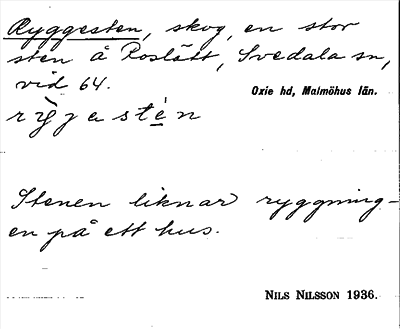 Ryggesten, skog, en stor
sten å Roslätt, Svedala sn,
vid 64.
Oxie hd, Malmöhus län.
Stenen liknar ryggning-
en på ett hus.
NILS NILSSON 1936.